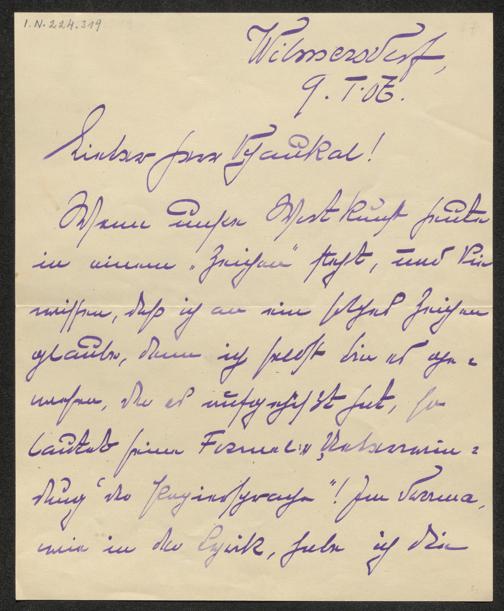 I.N. 224.319
Wilmersdorf,
9. I. 06.
Lieber Herr Schaukal!
Wenn unsre Wortkunst heute
in einem „Zeichen" steht, und Sie
wissen, daß ich an ein solches Zeichen
glaube, denn ich selbst bin es ge-
wesen, der es aufgerichtet hat, so
lautet seine Formel: „Ueberwin-
dung der Papiersprache"! Im Drama,
wie in der Lyrik, habe ich die